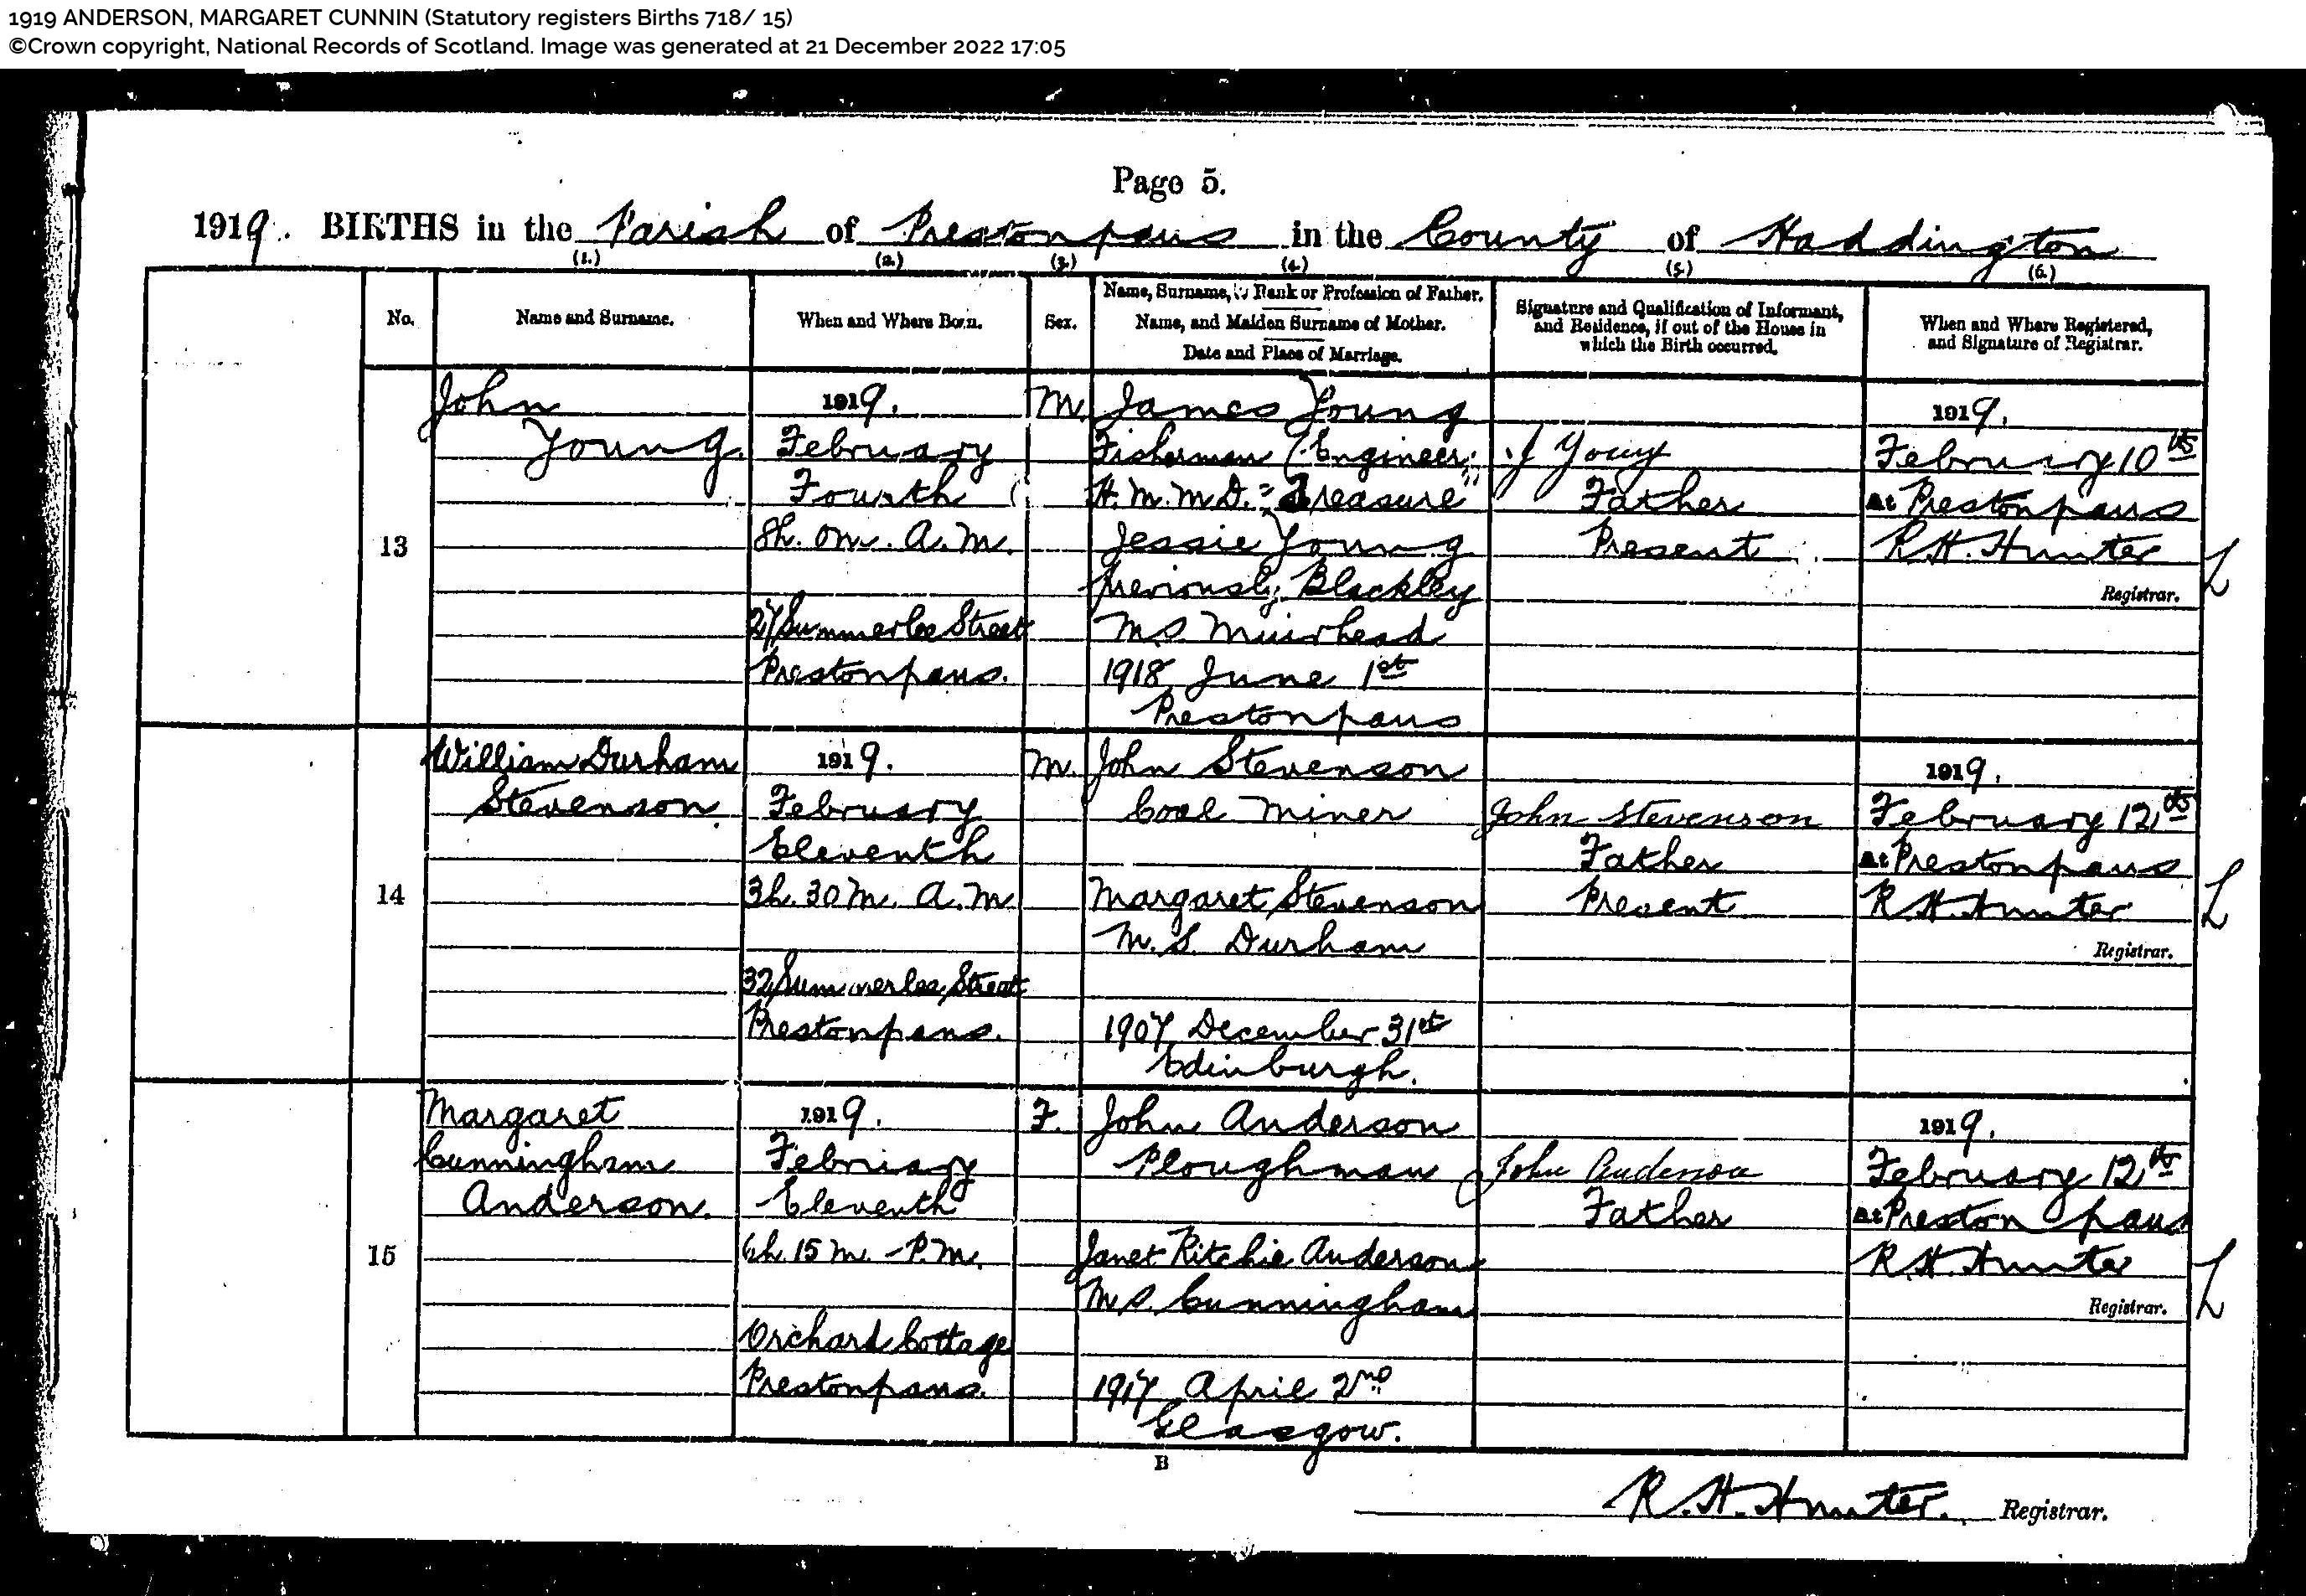 1919 ANDERSON, MARGARET CUNNIN (Statutory registers Births 718/ 15)
©Crown copyright, National Records of Scotland. Image was generated at 21 December 2022 17:05
Page 5.
1919. BIRTHS in the Parish of Prestonpans in the County of Haddington
(1.) (2.) (3.) (4.) (5.) (6.)
No.
Name and Surname.
When and Where Born.
Sex.
Name, Surname, & Rank or Profession of Father.
Name, and Maiden Surname of Mother.
Date and Place of Marriage.
Signature and Qualification of Informant,
and Residence, if out of the House in
which the Birth occurred.
When and Where Registered,
and Signature of Registrar.
13
John
Young.
1919.
February
Fourth
8h. 0m. A.M.
27 Summerlee Street
Prestonpans.
M.
James Young
Fisherman (Engineer,
H.M.M.D. "Treasure"
Jessie Young
previously Blackley
M.S. Muirhead
1918 June 1st
Prestonpans
J Young
Father
Present
1919.
February 10th
At Prestonpans
R.H. Hunter
Registrar.
L
14
William Durham
Stevenson.
1919.
February
Eleventh
3h. 30m. A.M.
32 Summerlee Street
Prestonpans.
M.
John Stevenson
Coal Miner
Margaret Stevenson
M.S. Durham
1907 December 31st
Edinburgh.
John Stevenson
Father
Present
1919.
February 12th
At Prestonpans
R.H. Hunter
Registrar.
L
15
Margaret
Cunningham
Anderson.
1919.
February
Eleventh
6h. 15m. P.M.
Orchard Cottage
Prestonpans.
F.
John Anderson
Ploughman
Janet Ritchie Anderson
M.S. Cunningham
1917 April 2nd
Glasgow.
John Anderson
Father
1919.
February 12th
At Prestonpans
R.H. Hunter
Registrar.
L
B
R.H. Hunter. Registrar.